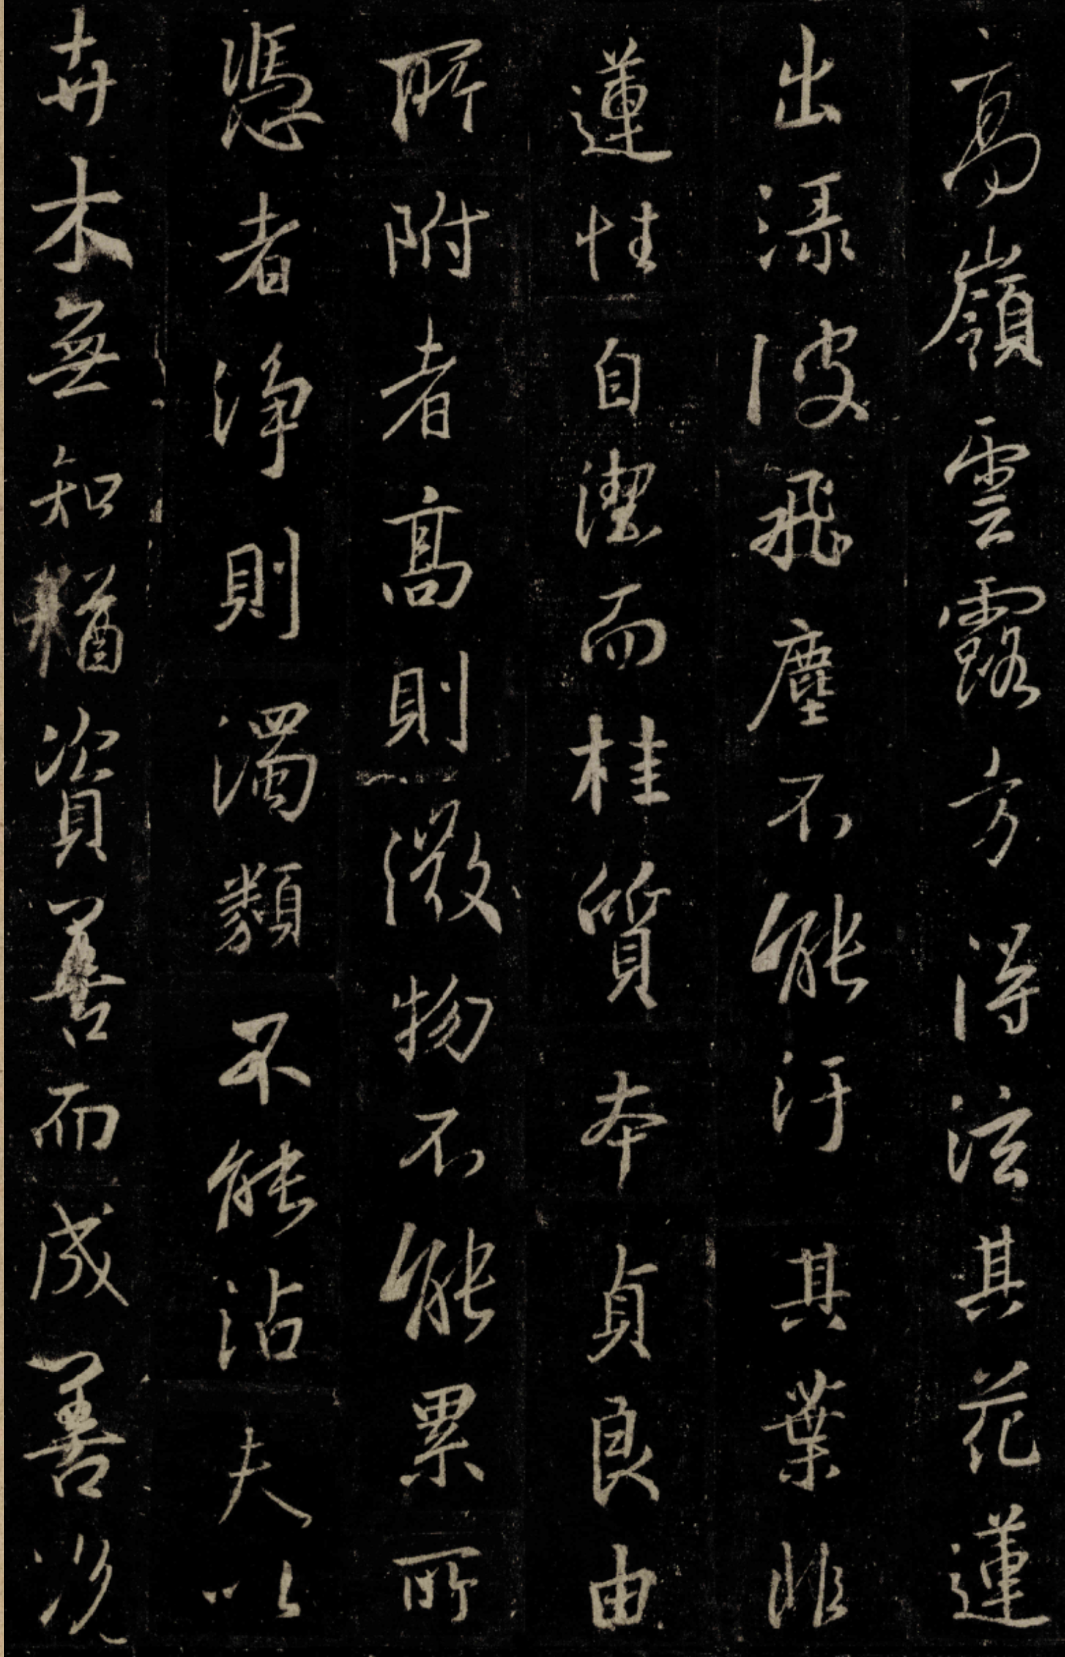 高嶺雲露方得泫其花蓮
出淥波飛塵不能汙其葉非
蓮性自潔而桂質本貞良由
所附者高則微物不能累所
憑者淨則濁類不能沾夫以
卉木無知猶資善而成善況